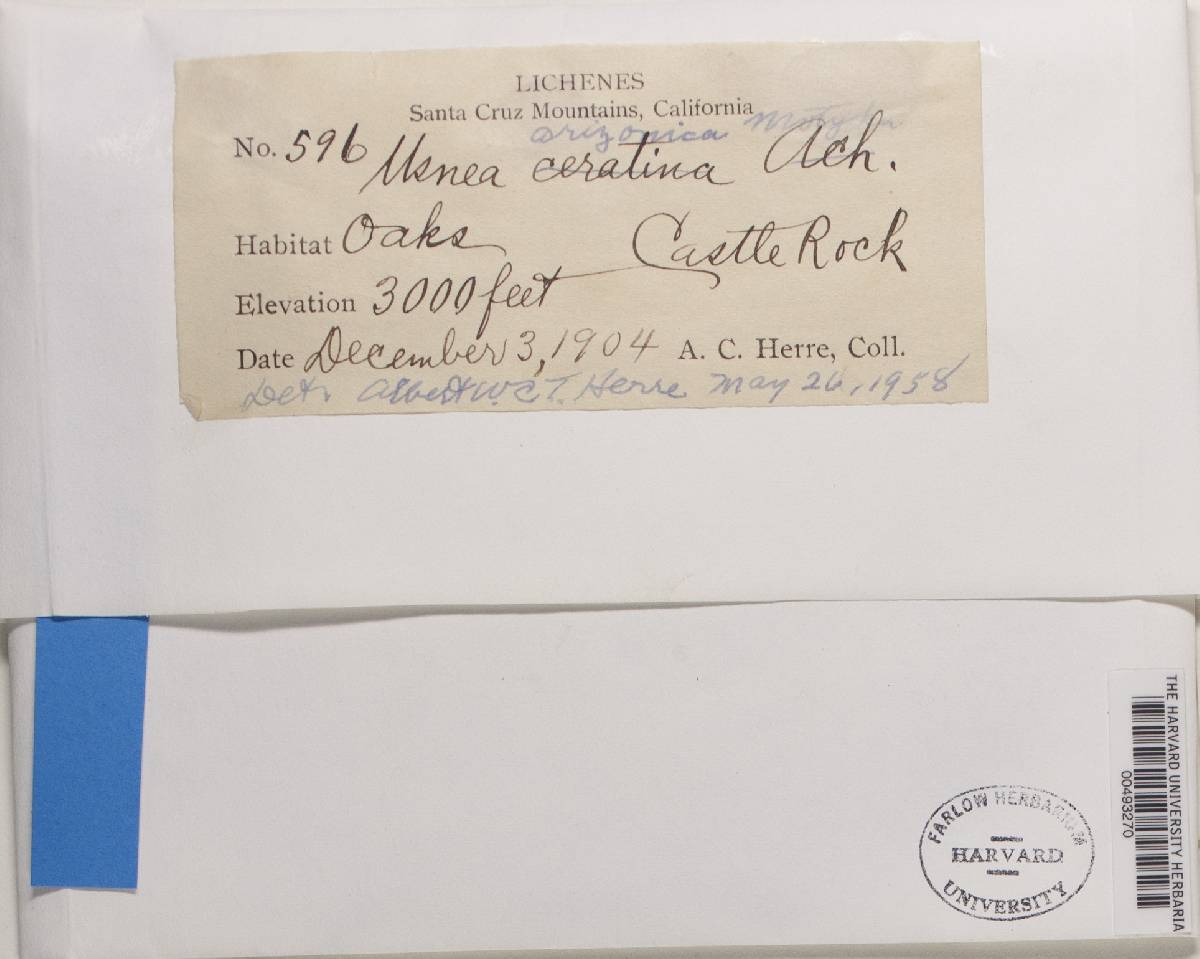 LICHENES
Santa Cruz Mountains, California
arizonica Motyka
No. 596 Usnea ceratina Ach.
Habitat Oaks Castle Rock
Elevation 3000 feet
Date December 3, 1904 A. C. Herre, Coll.
Det. Albert W.C.T. Herre May 26, 1958
FARLOW HERBARIUM
HARVARD
UNIVERSITY
THE HARVARD UNIVERSITY HERBARIA
00493270